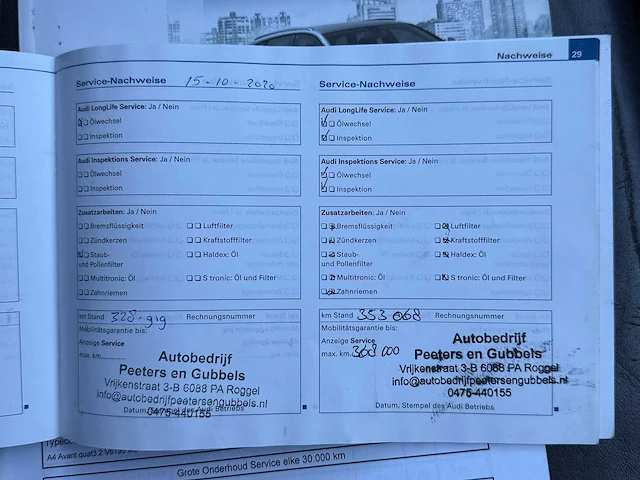 Nachweise 29
Service-Nachweise 15-10-2020
Audi LongLife Service: Ja / Nein
Ölwechsel
Inspektion
Audi Inspektions Service: Ja / Nein
Ölwechsel
Inspektion
Zusatzarbeiten: Ja / Nein
Bremsflüssigkeit Luftfilter
Zündkerzen Kraftstofffilter
Staub- Haldex: Öl
und Pollenfilter
Multitronic: Öl S tronic: Öl und Filter
Zahnriemen
km Stand 328-919 Rechnungsnummer
Mobilitätsgarantie bis:
Anzeige Service
max. km
Autobedrijf
Peeters en Gubbels
Vrijkenstraat 3-B 6088 PA Roggel
info@autobedrijfpeetersengubbels.nl
0475-440155
Datum, Stempel des Audi Betriebs
Service-Nachweise
Audi LongLife Service: Ja / Nein
Ölwechsel
Inspektion
Audi Inspektions Service: Ja / Nein
Ölwechsel
Inspektion
Zusatzarbeiten: Ja / Nein
Bremsflüssigkeit Luftfilter
Zündkerzen Kraftstofffilter
Staub- Haldex: Öl
und Pollenfilter
Multitronic: Öl S tronic: Öl und Filter
Zahnriemen
km Stand 353 068 Rechnungsnummer
Mobilitätsgarantie bis:
Anzeige Service
max. km 368 000
Autobedrijf
Peeters en Gubbels
Vrijkenstraat 3-B 6088 PA Roggel
info@autobedrijfpeetersengubbels.nl
0475-440155
Datum, Stempel des Audi Betriebs
A4 Avant quat3.2 V6
Grote Onderhoud Service elke 30.000 km